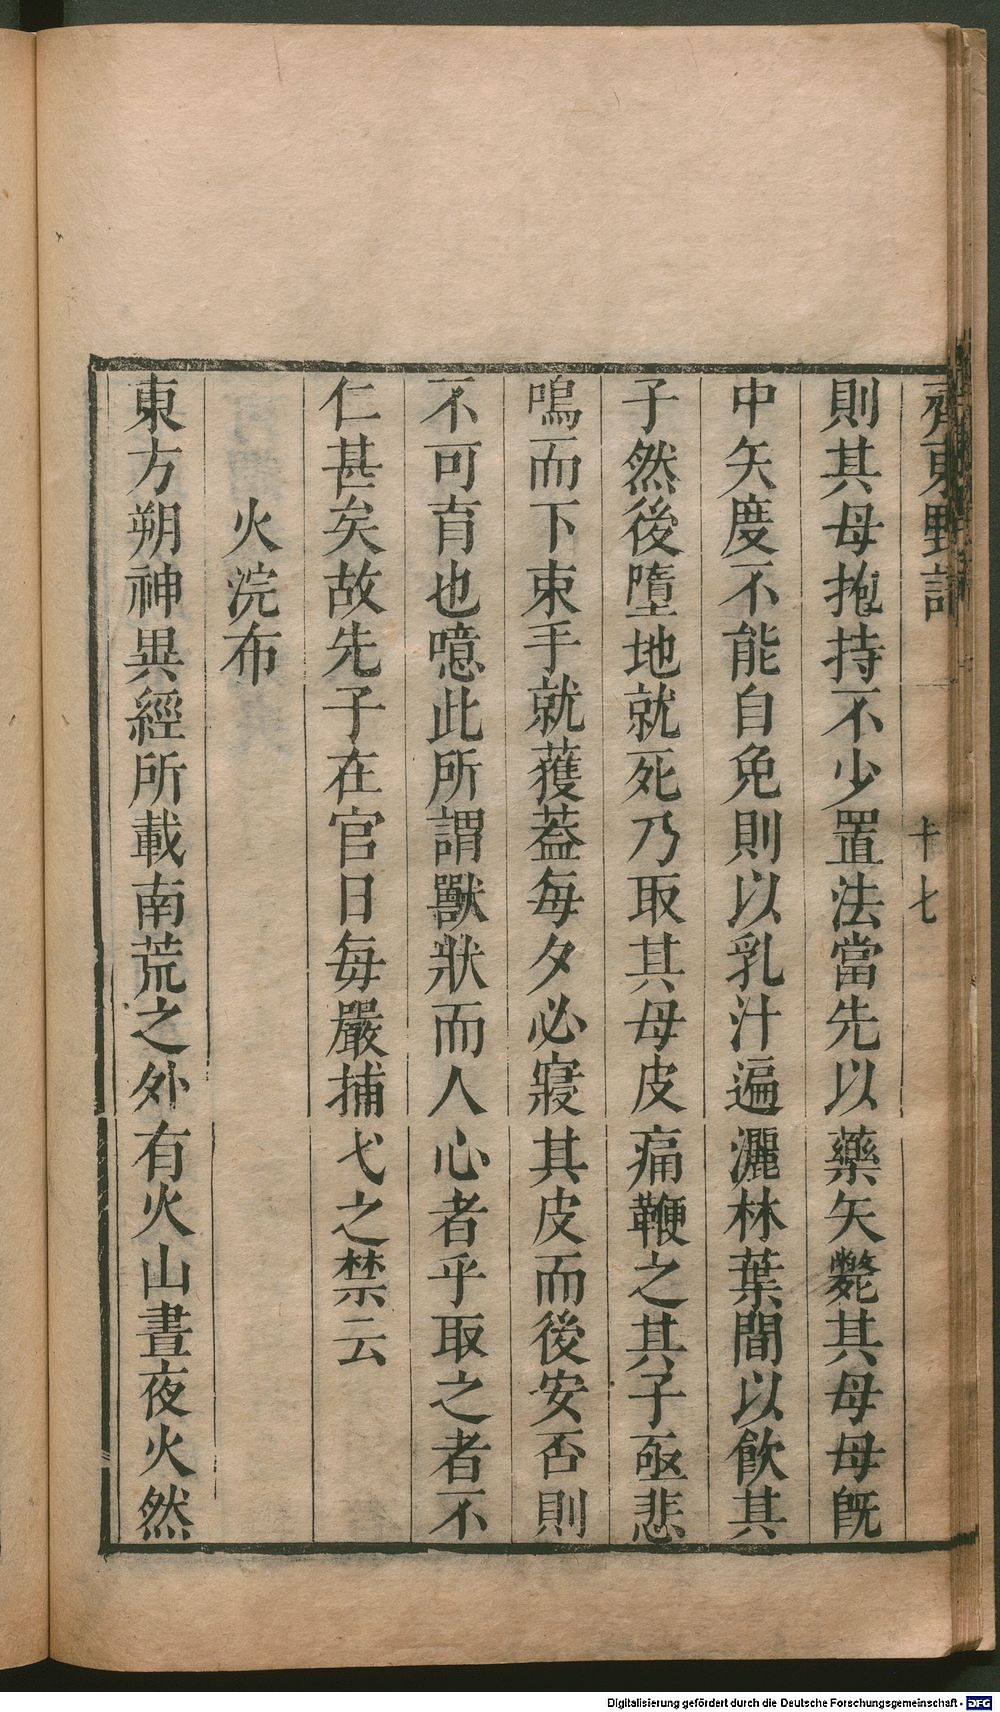 齊東野語
十七
則其母抱持不少置法當先以藥矢斃其母母旣
中矢度不能自免則以乳汁遍灑林葉間以飲其
子然後墮地就死乃取其母皮痛鞭之其子亟悲
鳴而下束手就蓫葢每夕必寢其皮而後安否則
不可育也噫此所謂獸狀而人心者乎取之者不
仁甚矣故先子在官日每嚴捕弋之禁云
火浣布
東方朔神異經所載南荒之外有火山晝夜火然
Digitalisierung gefördert durch die Deutsche Forschungsgemeinschaft - DFG